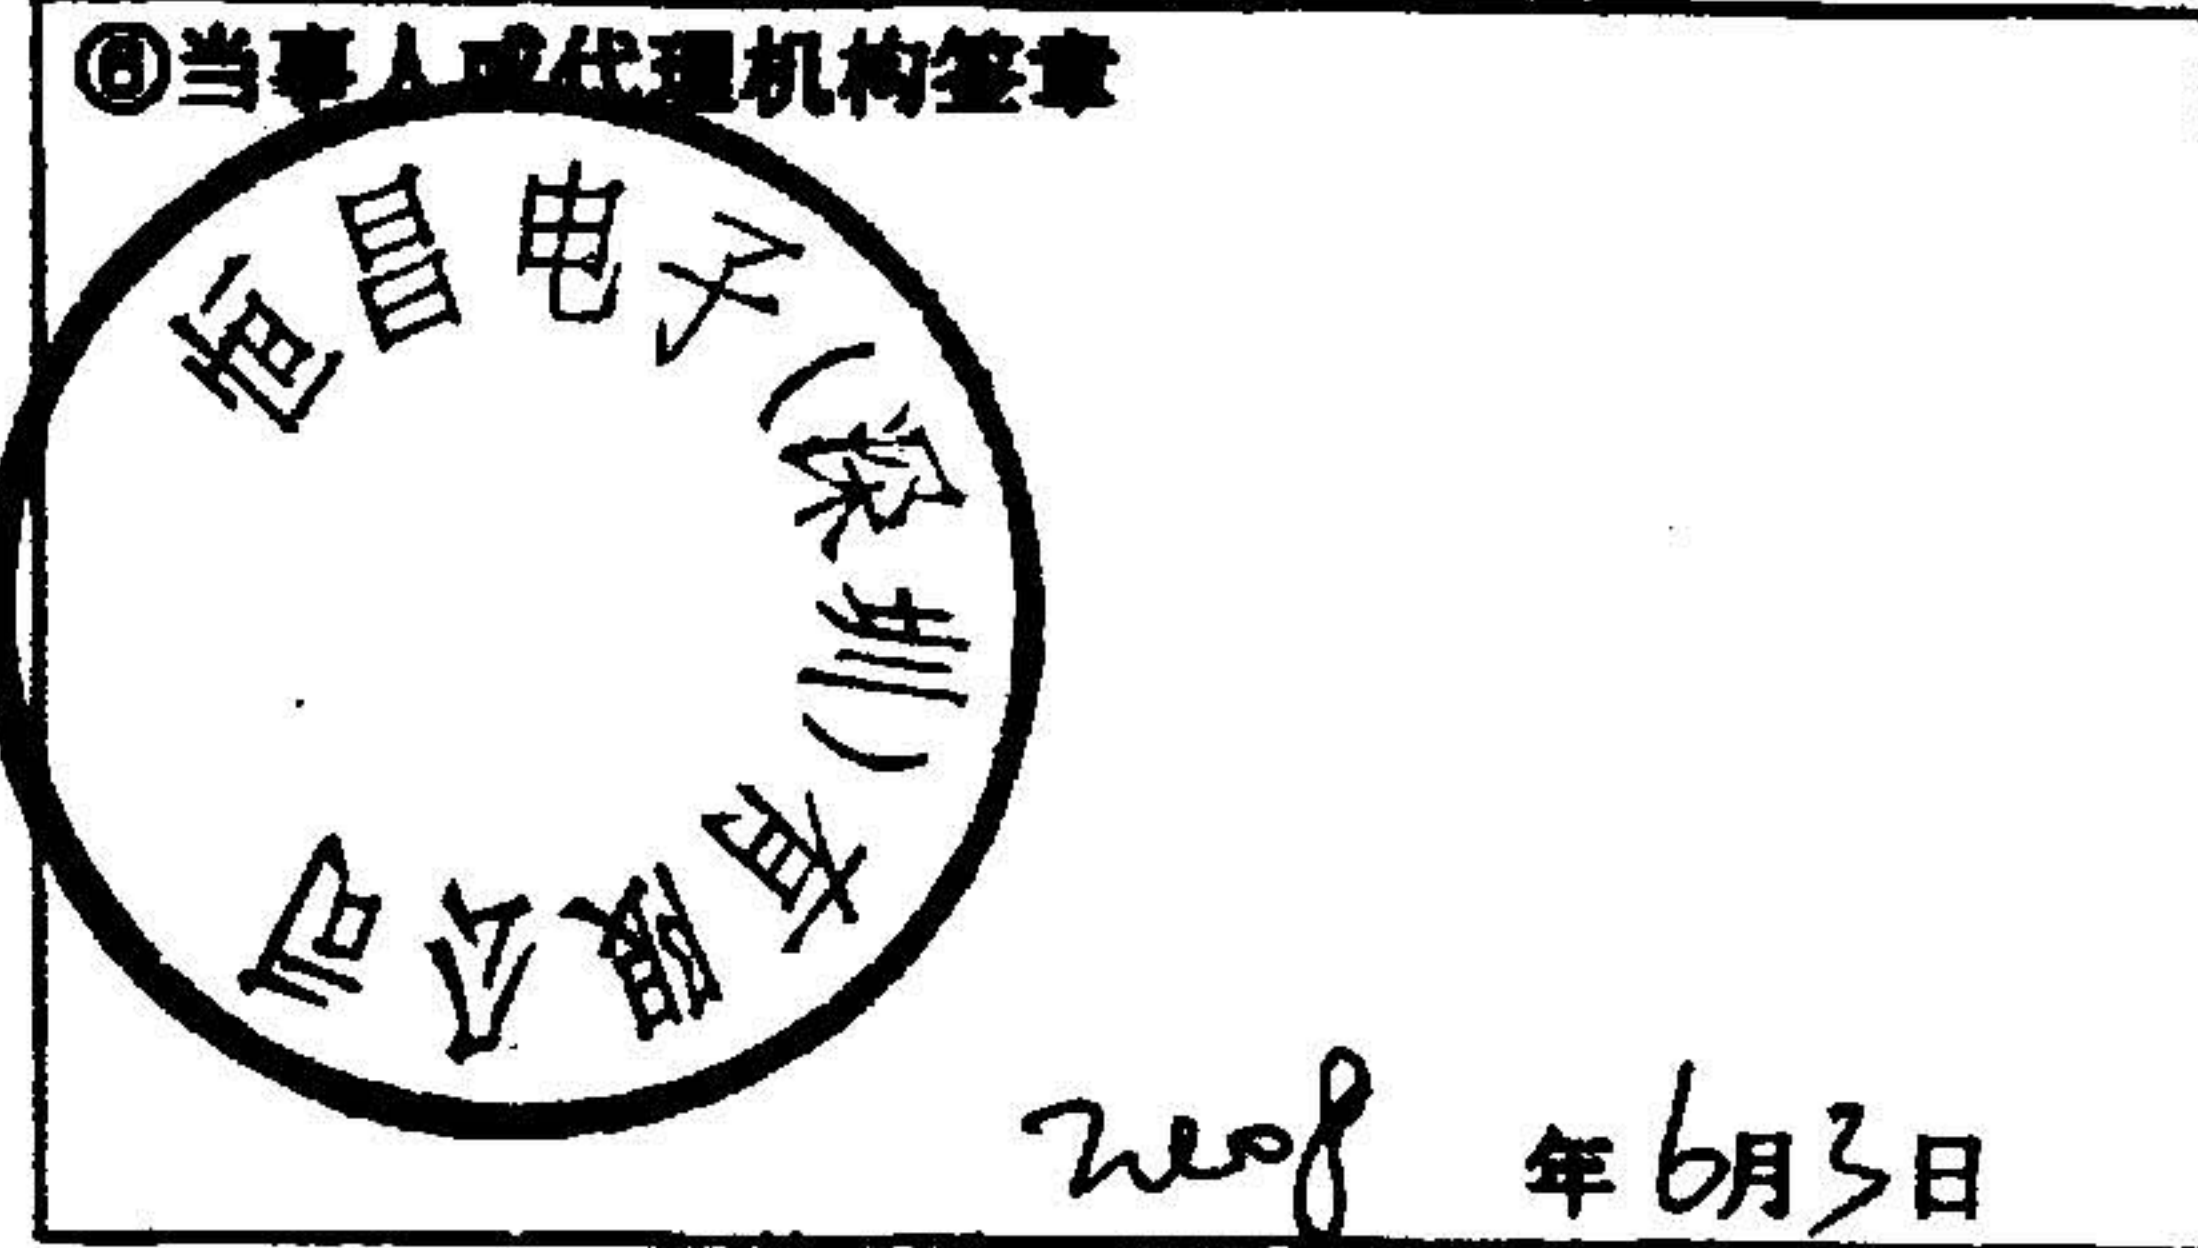 ⑥当事人或代理机构签章
恒昌电子(深圳)有限公司
2008 年6月3日